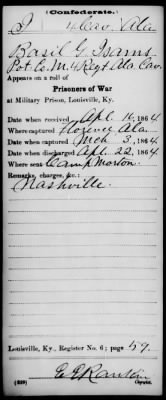 (Confederate.)
I 4 Cav. Ala
Basil G. Isams
Pvt Co. M, 4 Regt Ala. Cav.
Appears on a roll of
Prisoners of War
at Military Prison, Louisville, Ky.
Date when received Apl. 16, 1864
Where captured Florence Ala.
Date when captured Mch 3, 1864
Date when discharged Apl. 22, 1864
Where sent Camp Morton.
Remarks, charges, &c.:
Nashville.
Louisville, Ky., Register No. 6; page 59.
(639) Copyist.